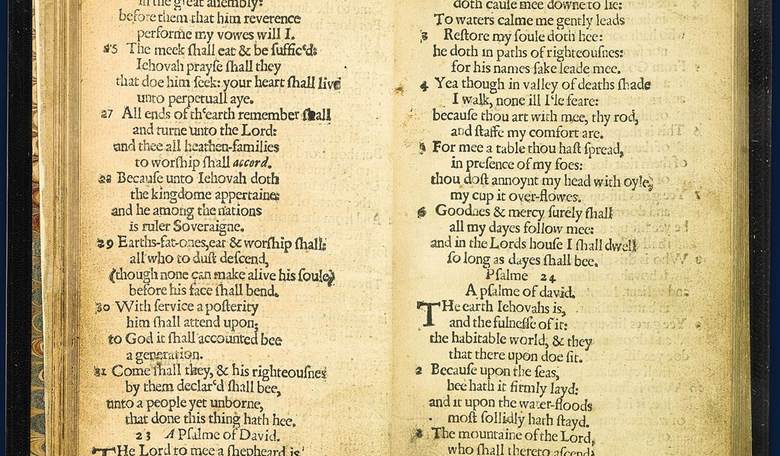 in the great aſſembly:
before them that him reverence
performe my vowes will I.
25 The meek ſhall eat & be ſuffic'd:
Iehovah prayſe ſhall they
that doe him ſeek: your heart ſhall live
unto perpetuall aye.
27 All ends of th'earth remember ſhall
and turne unto the Lord:
and thee all heathen-families
to worſhip ſhall accord.
28 Becauſe unto Iehovah doth
the kingdome appertaine:
and he among the nations
is ruler Soveraigne.
29 Earths-fat-ones, eat & worſhip ſhall:
all who to duſt deſcend,
(though none can make alive his ſoule)
before his face ſhall bend.
30 With ſervice a poſterity
him ſhall attend upon;
to God it ſhall accounted bee
a generation.
31 Come ſhall they, & his righteouſnes
by them declar'd ſhall bee,
unto a people yet unborne,
that done this thing hath hee.
23 A Pſalme of David.
THe Lord to mee a ſhepheard is
doth cauſe mee downe to lie:
To waters calme me gently leads
3 Reſtore my ſoule doth hee:
he doth in paths of righteouſnes:
for his names ſake leade mee.
4 Yea though in valley of deaths ſhade
I walk, none ill I'le feare:
becauſe thou art with mee, thy rod,
and ſtaffe my comfort are.
5 For mee a table thou haſt ſpread,
in preſence of my foes:
thou doſt annoynt my head with oyle,
my cup it over-flowes.
6 Goodnes & mercy ſurely ſhall
all my dayes follow mee:
and in the Lords houſe I ſhall dwell
ſo long as dayes ſhall bee.
Pſalme 24
A pſalme of david.
THe earth Iehovahs is,
and the fulneſſe of it:
the habitable world, & they
that there upon doe ſit.
2 Becauſe upon the ſeas,
hee hath it firmly layd:
and it upon the water-floods
moſt ſollidly hath ſtayd.
3 The mountaine of the Lord,
who ſhall thereto aſcend?